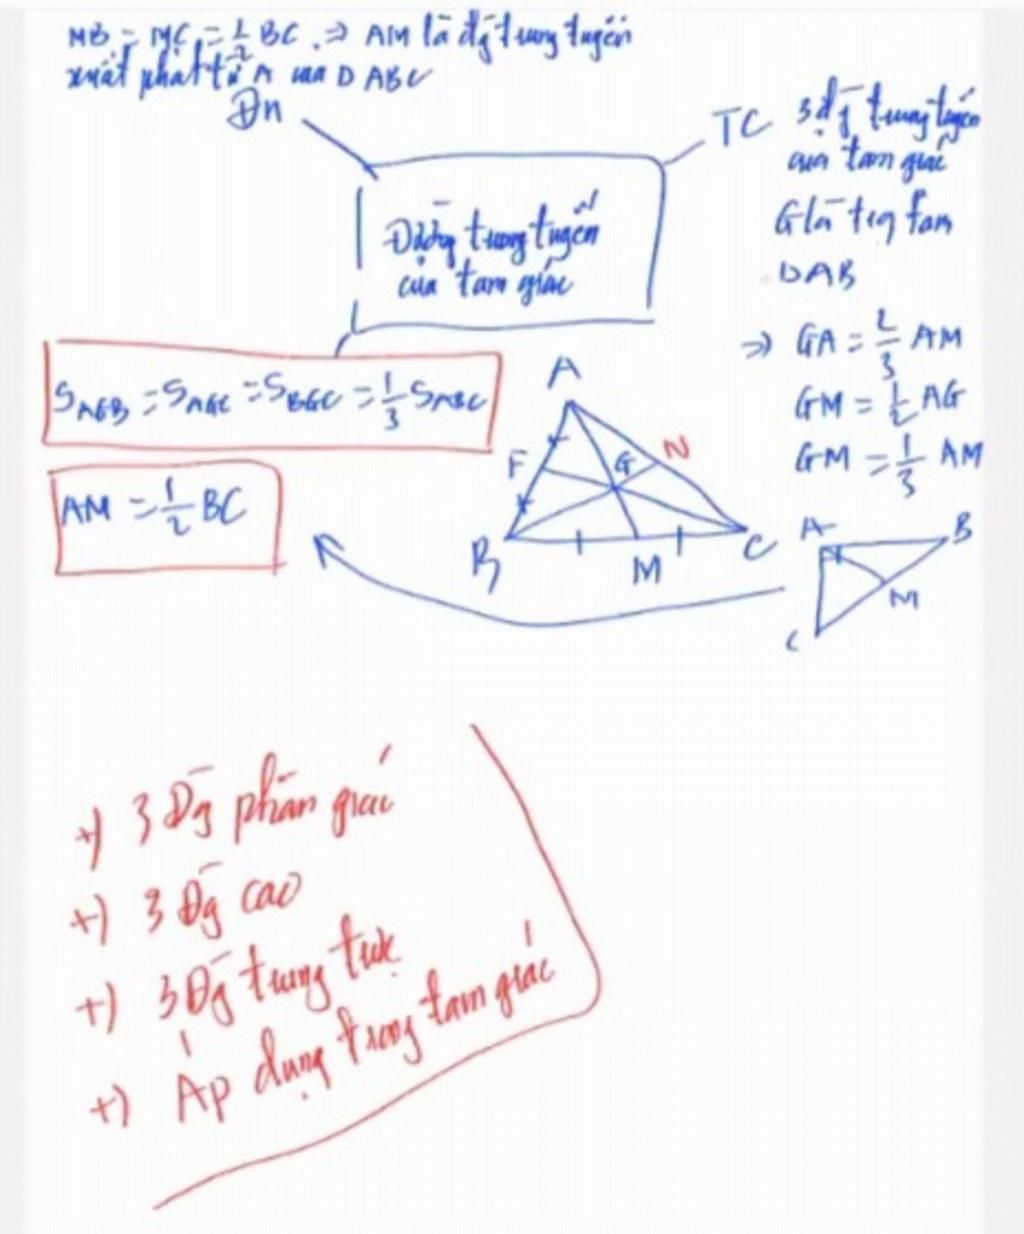 MB = MC = 1/2 BC. => AM là đg trung tuyến
xuất phát từ A của D ABC
Đn
TC 3 đg trung tuyến
của tam giác
G là
tam
DAB
Đường trung tuyến
của tam giác
=> GA = 2/3 AM
GM = 1/2 AG
GM = 1/3 AM
SAGB = SAGC = SBGC = 1/3 SABC
AM = 1/2 BC
A
F
G
N
B
M
C
A
B
M
C
+) 3 Đg phân giác
+) 3 Đg cao
+) 3 Đg trung trực
+) Áp dụng trong tam giác